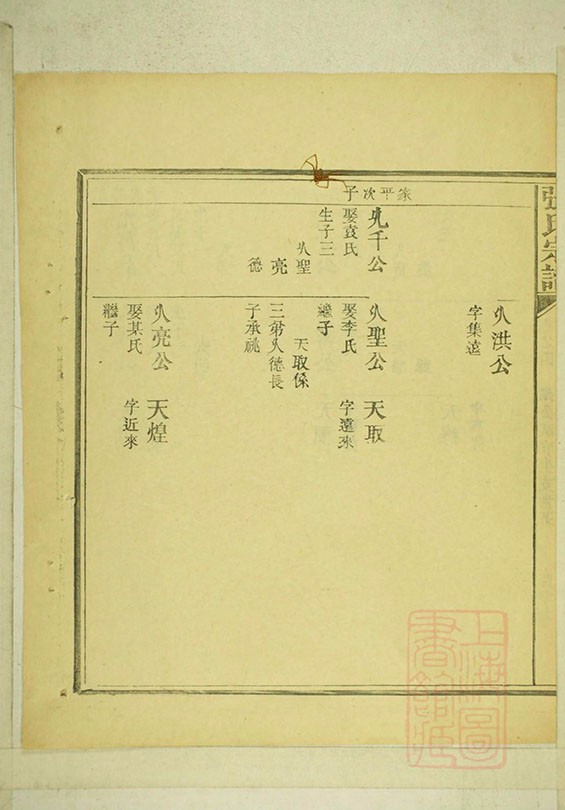 張氏宗譜
乆洪公
字集遠
平次子
千公
娶袁氏
生子三
乆聖
亮
德
乆聖公 天取
娶李氏 字遠來
繼子
天取係
三弟乆德長
子承祧
乆亮公 天煌
娶某氏 字近來
繼子
上海圖書館藏